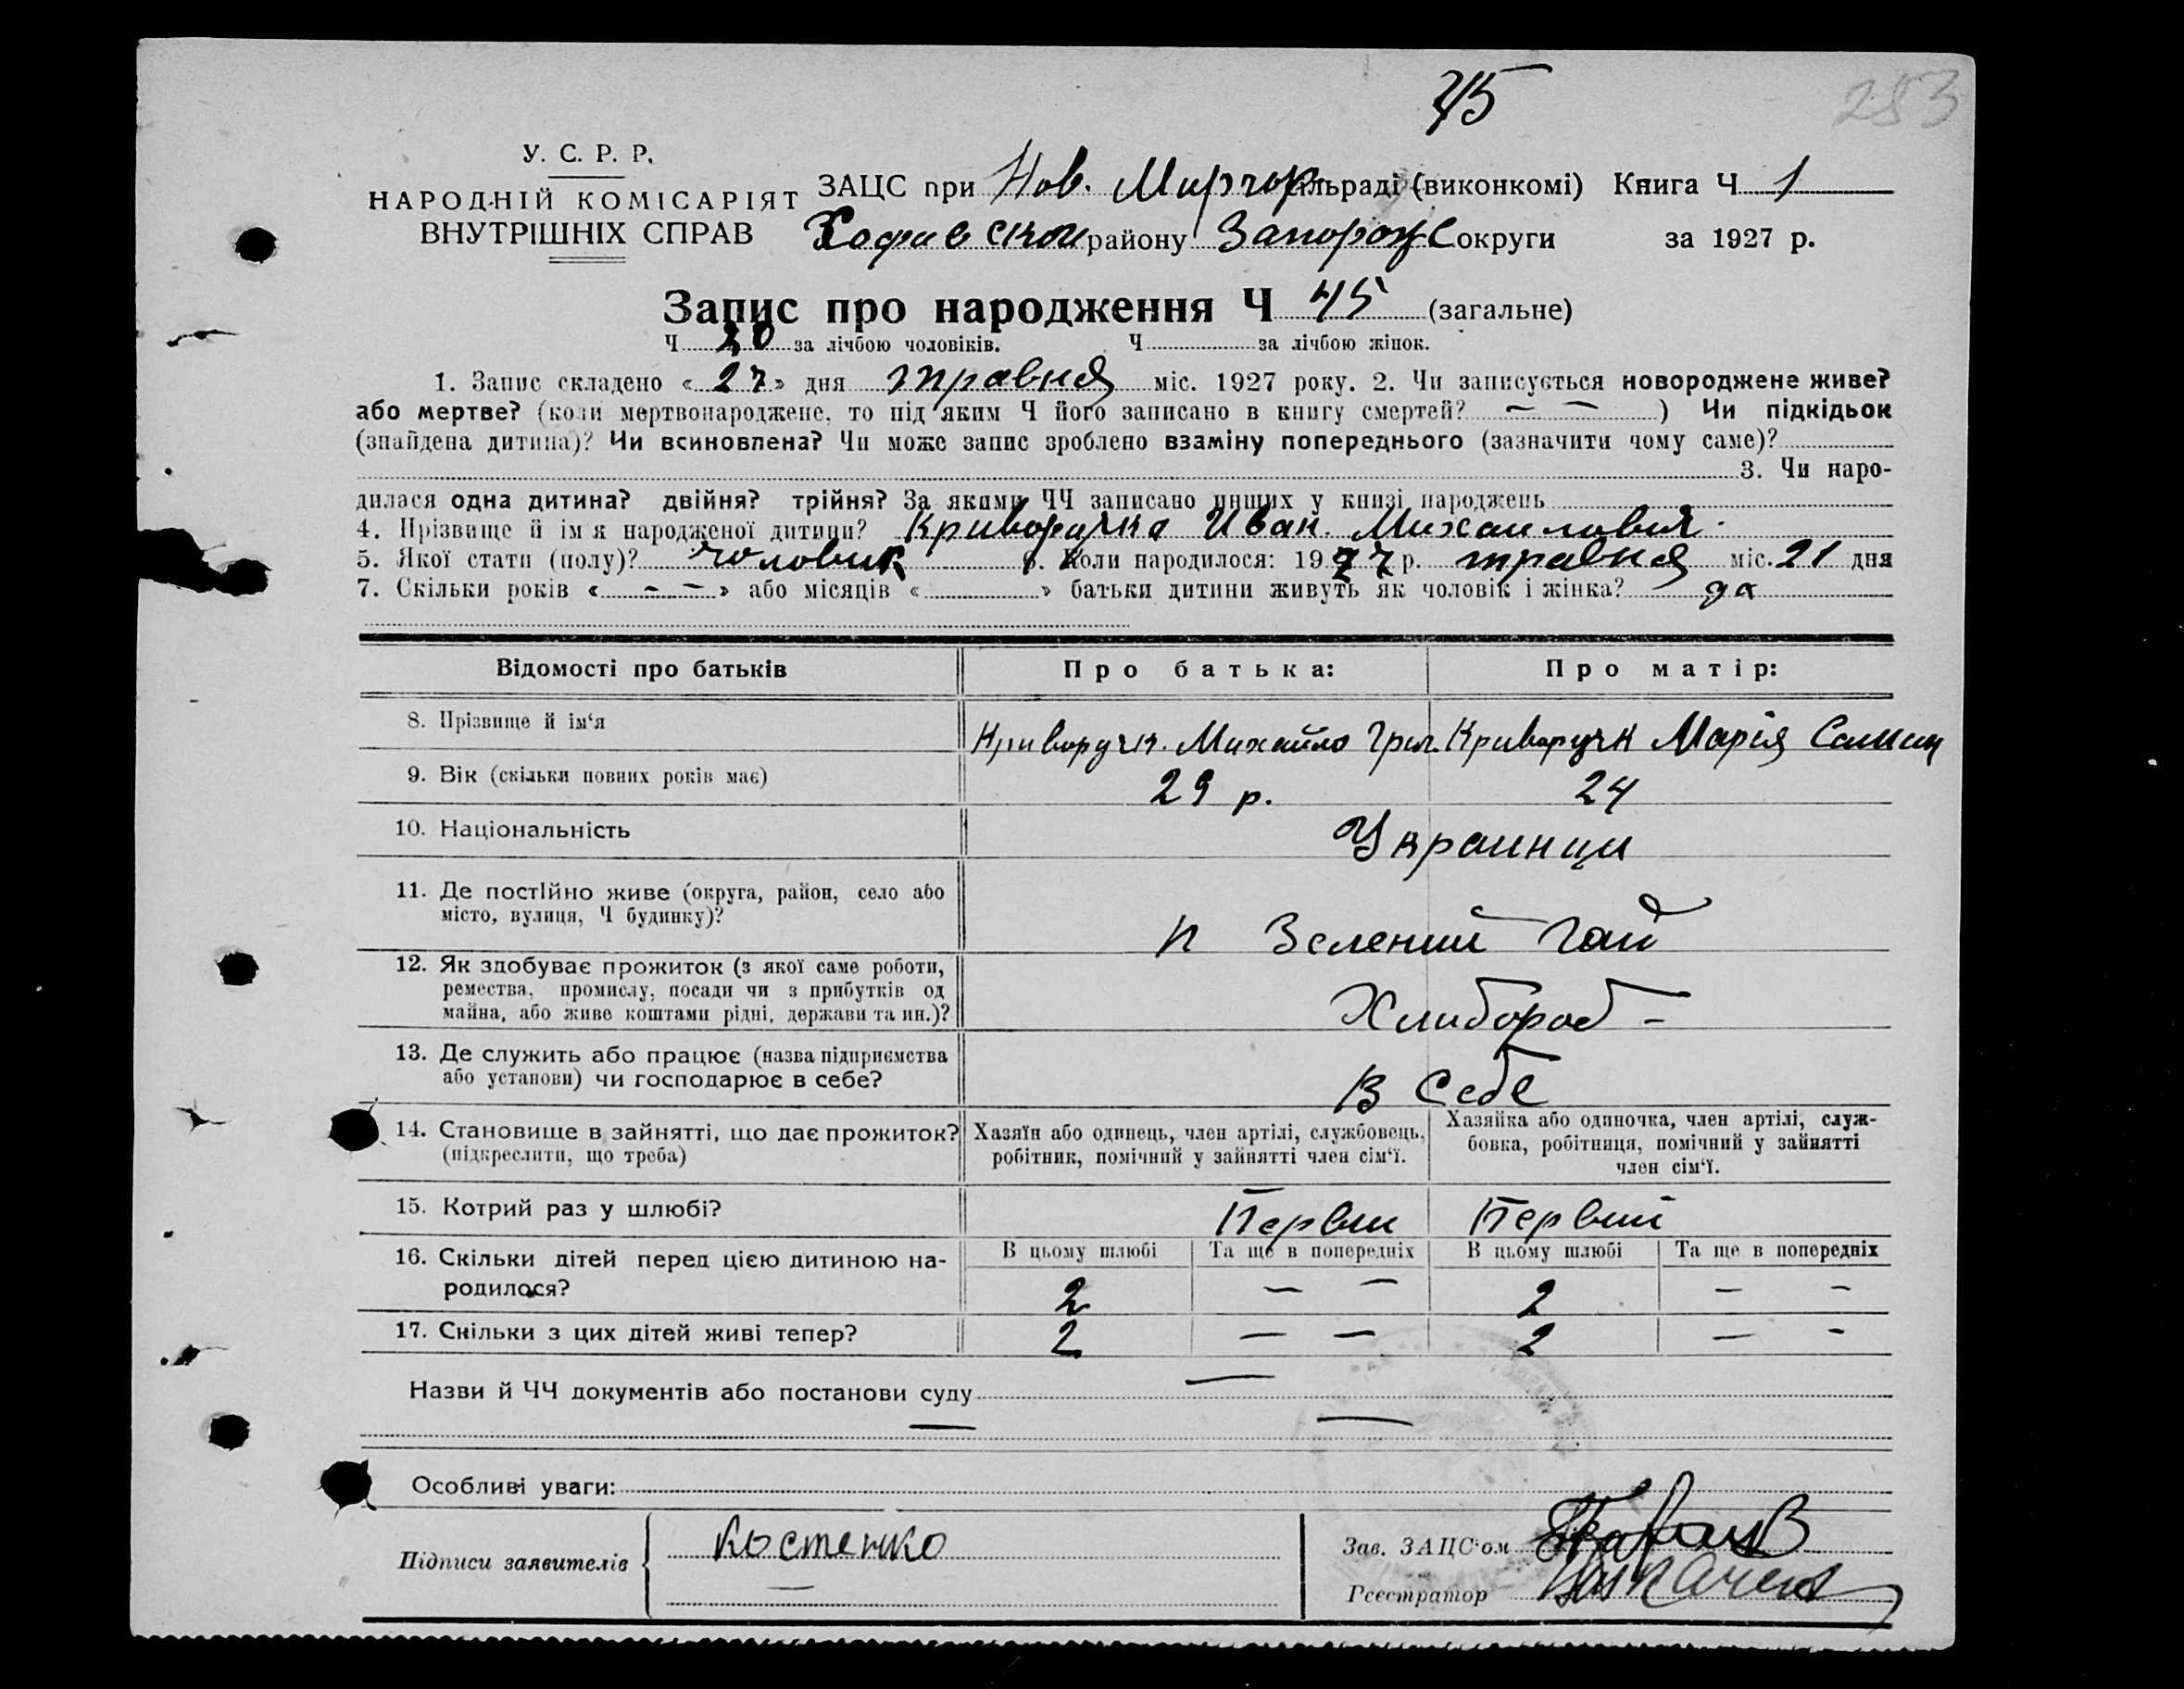 45
253
У. С. Р. Р.
НАРОДНІЙ КОМІСАРІЯТ
ВНУТРІШНІХ СПРАВ
ЗАЦС при Нов. Миргор сільраді (виконкомі) Книга Ч 1
району Запорож округи за 1927 р.
Запис про народження Ч 45 (загальне)
Ч 20 за лічбою чоловіків. Ч за лічбою жінок.
1. Запис складено « 27 » дня травня міс. 1927 року. 2. Чи записується новороджене живе?
або мертве? (коли мертвонароджене, то під яким Ч його записано в книгу смертей? — — ) Чи підкідьок
(знайдена дитина)? Чи всиновлена? Чи може запис зроблено взаміну попереднього (зазначити чому саме)?
3. Чи наро-
дилася одна дитина? двійня? трійня? За якими ЧЧ записано инших у книзі народжень
4. Прізвище й ім я народженої дитини? Криворучка Иван. Михаилович.
5. Якої стати (полу)? чоловик 6. Коли народилося: 1927 р. травня міс. 21 дня
7. Скільки років « — — » або місяців « » батьки дитини живуть як чоловік і жінка? да
Відомості про батьків Про батька: Про матір:
8. Прізвище й ім‘я Криворучк. Михайло Григ. Криворучк Марія
9. Вік (скільки повних років має) 29 р. 24
10. Національність Украинци
11. Де постійно живе (округа, район, село або
місто, вулиця, Ч будинку)?
п Зелений Гай
12. Як здобуває прожиток (з якої саме роботи,
ремества, промислу, посади чи з прибутків од
майна, або живе коштами рідні, держави та ин.)?
Хлибороб —
13. Де служить або працює (назва підприємства
або установи) чи господарює в себе?
В Себе
14. Становище в зайнятті, що дає прожиток?
(підкреслити, що треба)
Хазяїн або одинець, член артілі, службовець,
робітник, помічний у зайнятті член сім‘ї.
Хазяйка або одиночка, член артілі, служ-
бовка, робітниця, помічний у зайнятті
член сім‘ї.
15. Котрий раз у шлюбі? Перви Первий
16. Скільки дітей перед цією дитиною на-
родилося?
В цьому шлюбі Та ще в попередніх В цьому шлюбі Та ще в попередніх
2 — — 2 — —
17. Скільки з цих дітей живі тепер? 2 — — 2 — —
Назви й ЧЧ документів або постанови суду —
— —
Особливі уваги:
Підписи заявителів Костенко
—
Зав. ЗАЦС‘ом
Реєстратор